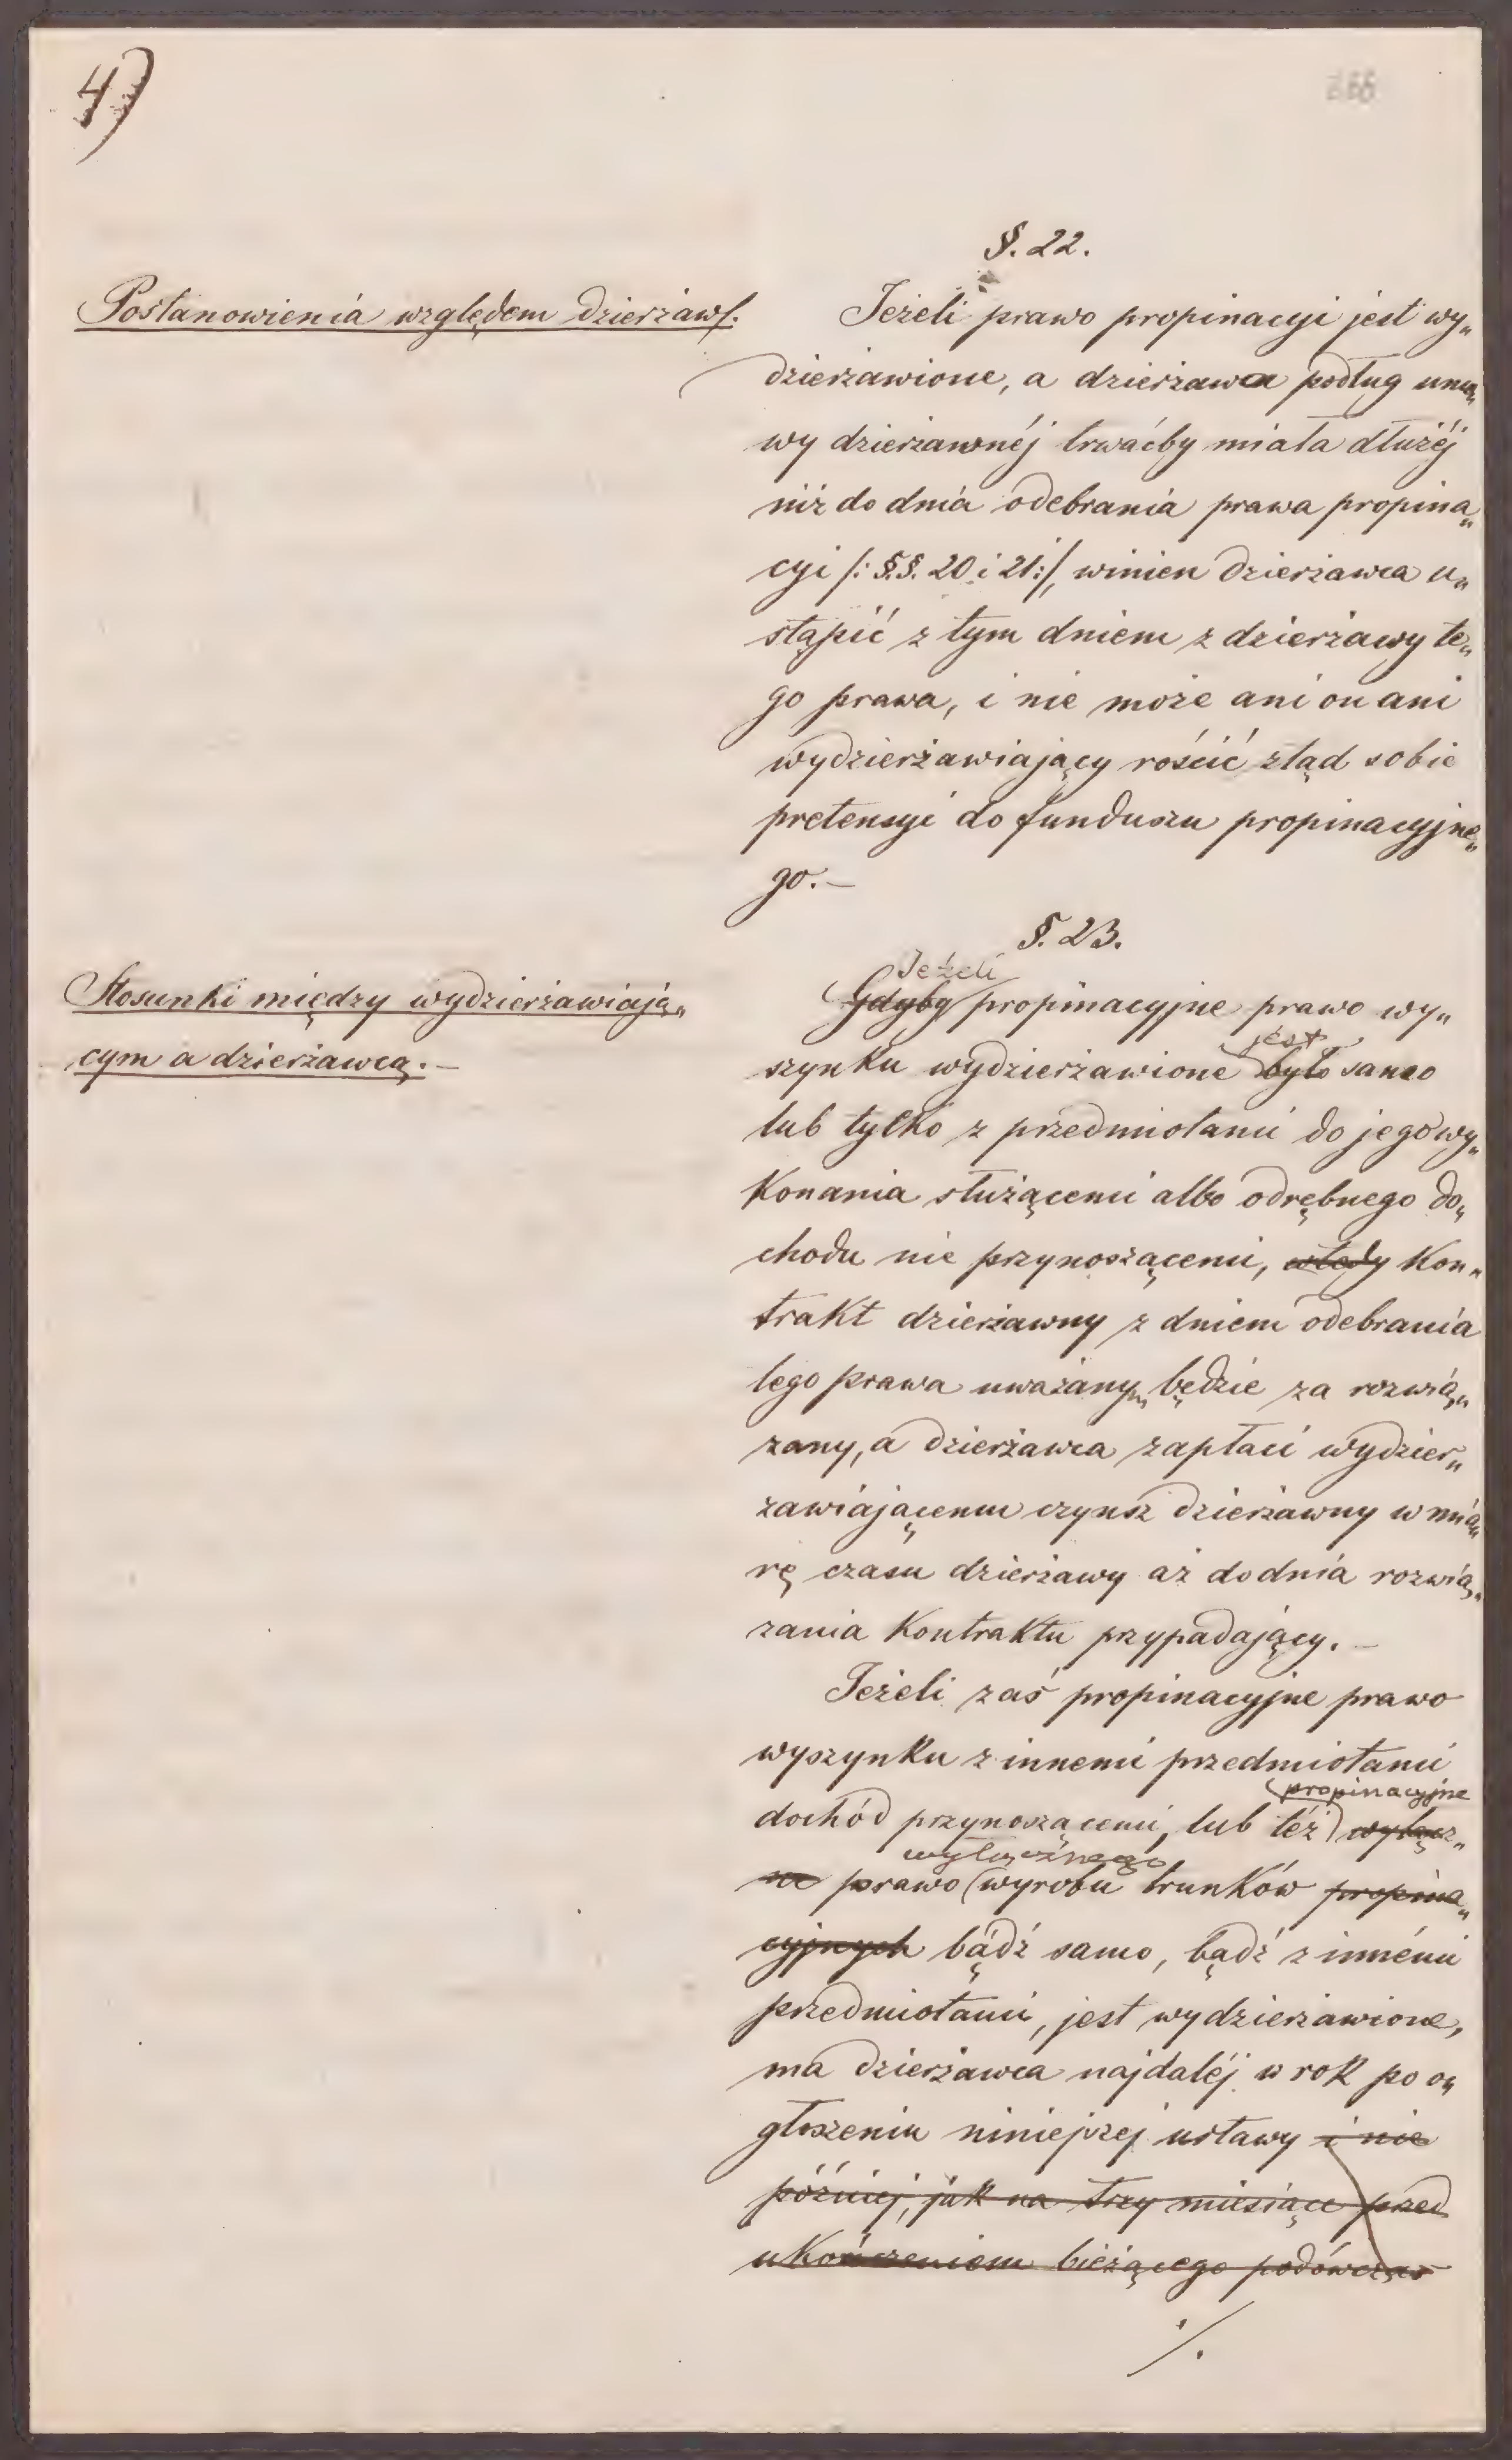 4)
§. 22.
Postanowienia względem dzierżawy.
Jeżeli prawo propinacyi jest wy„
dzierżawione, a dzierżawa podług umo„
wy dzierżawnéj trwaćby miała dłużéj
niż do dnia odebrania prawa propina„
cyi /: §.§. 20 i 21:/, winien dzierżawca u„
stąpić z tym dniem z dzierżawy te„
go prawa, i nie może ani on ani
wydzierżawiający rościć ztąd sobie
pretensyi do funduszu propinacyjne„
go.—
§. 23.
Stosunki między wydzierżawiają„
cym a dzierżawcą.—
Jeżeli
Gdyby propinacyjne prawo wy„
jest
szynku wydzierżawione było samo
lub tylko z przedmiotami do jego wy„
konania służącemi albo odrębnego do„
chodu nie przynoszącemi, wtedy kon„
trakt dzierżawny z dniem odebrania
tego prawa uważanym będzie za rozwią„
zany, a dzierżawca zapłaci wydzier„
żawiającemu czynsz dzierżawny w mia„
rę czasu dzierżawy aż do dnia rozwią„
zania kontraktu przypadający.—
Jeżeli zaś propinacyjne prawo
wyszynku z innemi przedmiotami
propinacyjne
dochód przynoszącemi, lub téż wyłącz„
wyłącznego
ne prawo wyrobu trunków propina„
cyjnych bądź samo, bądź z innémi
przedmiotami, jest wydzierżawione,
ma dzierżawca najdaléj w rok po o„
głoszeniu niniejszej ustawy i nie
później, jak na trzy miesiące przed
ukończeniem bieżącego podówczas
./.